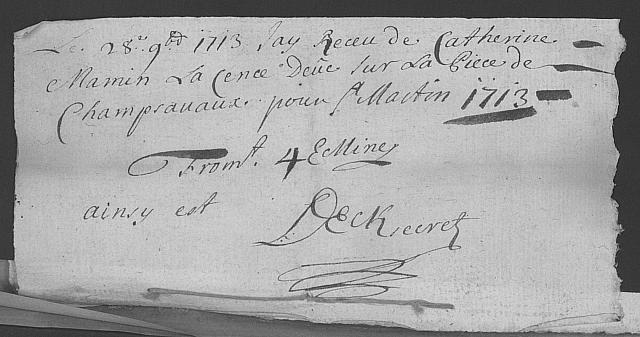 Le 28e 9bd 1713 Jay Receu de Catherine
Mamin La Cence Deüe sur La Piece de
Champravaux pour St Martin 1713
From.t 4 Eminey
ainsy est
Deck secret